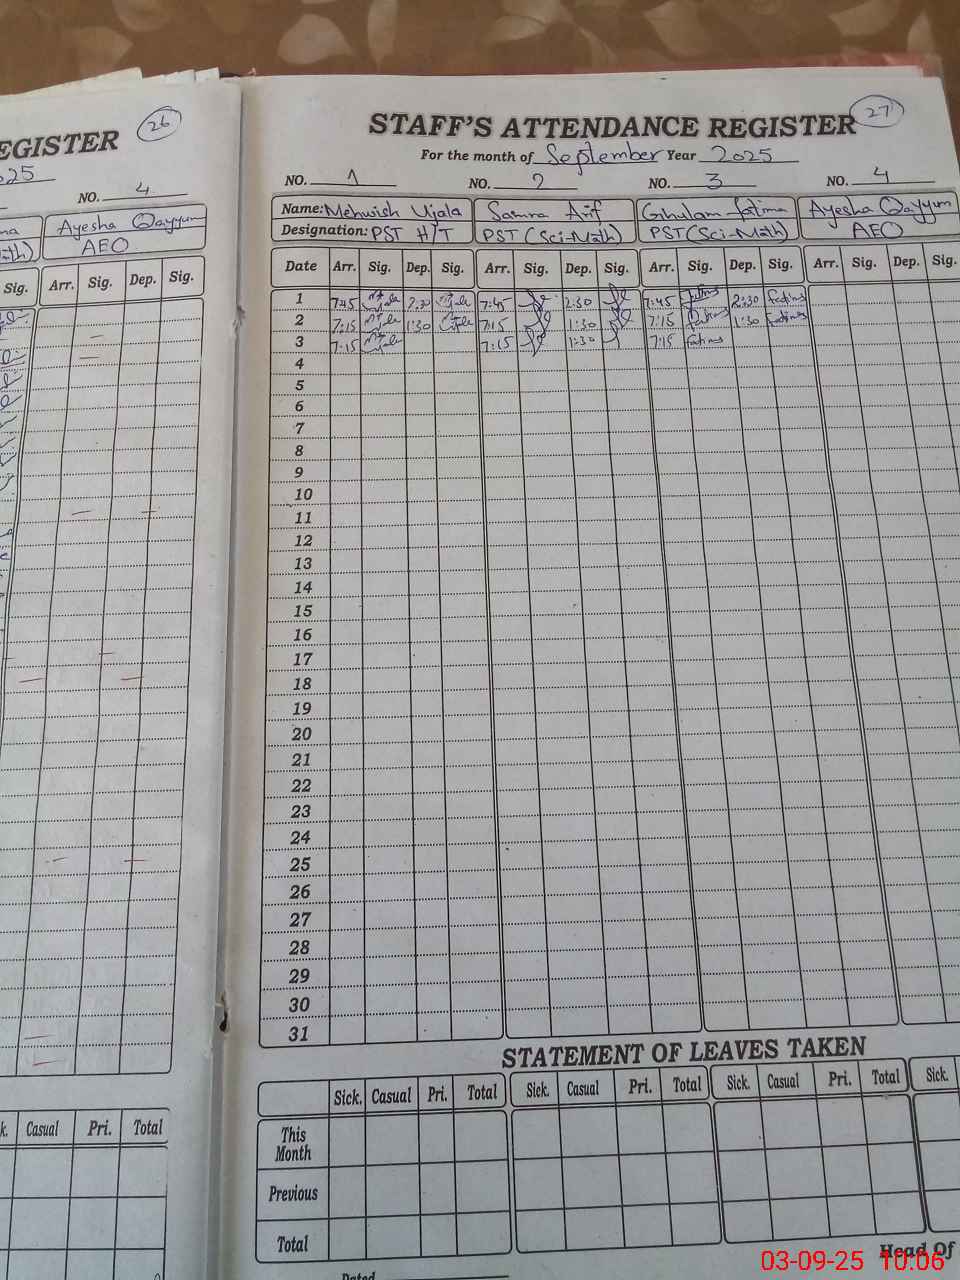 26
EGISTER
025
NO. 4
Ayesha Qayyum
AEO
Sig. Arr. Sig. Dep. Sig.
Casual Pri. Total
27
STAFF'S ATTENDANCE REGISTER
For the month of September Year 2025
NO. 1 NO. 2 NO. 3 NO. 4
Name: Mehwish Ujala Samra Arif Ghulam Fatima Ayesha Qayyum
Designation: PST H/T PST (Sci-Math) PST (Sci-Math) AEO
Date Arr. Sig. Dep. Sig. Arr. Sig. Dep. Sig. Arr. Sig. Dep. Sig. Arr. Sig. Dep. Sig.
1 7:45 2:30 7:45 2:30 7:45 Fatima 2:30 Fatima
2 7:15 1:30 7:15 1:30 7:15 Fatima 1:30 Fatima
3 7:15 7:15 1:30 7:15 Fatima
4
5
6
7
8
9
10
11
12
13
14
15
16
17
18
19
20
21
22
23
24
25
26
27
28
29
30
31
STATEMENT OF LEAVES TAKEN
Sick. Casual Pri. Total Sick. Casual Pri. Total Sick. Casual Pri. Total Sick.
This Month
Previous
Total
Head Of
Dated
03-09-25 10:06